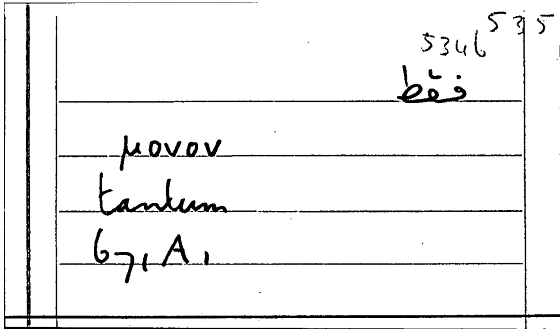 5346 535
فقط
μονον
tantum
67, A,